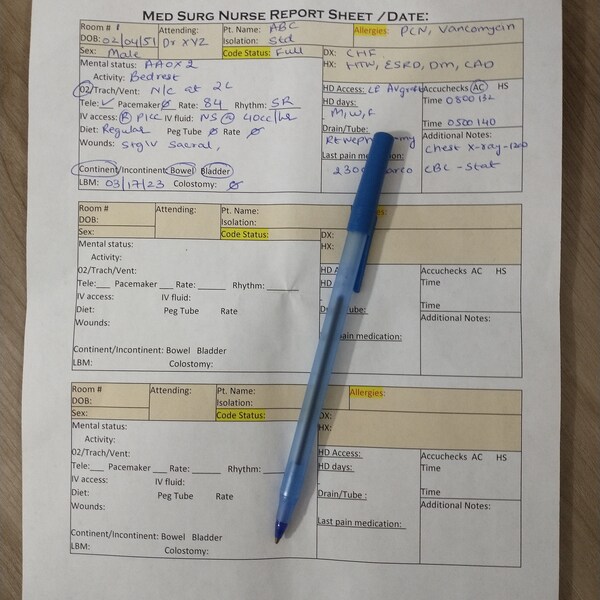 MED SURG NURSE REPORT SHEET /DATE:
Room # 1 Attending: Pt. Name: ABC Allergies: PCN, Vancomycin
DOB: 02/04/51 Dr XYZ Isolation: Std
Sex: Male Code Status: Full DX: CHF
Mental status: AAOX2 HX: HTN, ESRD, DM, CAD
Activity: Bedrest
02/Trach/Vent: N/c at 2L HD Access: LE Avgraft Accuchecks AC HS
Tele: ✓ Pacemaker Ø Rate: 84 Rhythm: SR HD days: Time 0800 132
IV access: R PICC IV fluid: NS @ 40cc/hr M, W, F
Diet: Regular Peg Tube Ø Rate Ø Time 0500 140
Wounds: Stg IV Sacral, Drain/Tube: Additional Notes:
Rt neph my Chest X-ray-1200
Last pain medication: CBC - Stat
Continent/Incontinent: Bowel Bladder 2300 arco
LBM: 03/17/23 Colostomy: Ø
Room # Attending: Pt. Name: es:
DOB: Isolation:
Sex: Code Status: DX:
Mental status: HX:
Activity:
02/Trach/Vent: HD A : Accuchecks AC HS
Tele:___ Pacemaker ___ Rate: ____ Rhythm: ____ HD Time
IV access: IV fluid:
Diet: Peg Tube Rate Time
Wounds: D ube: Additional Notes:
pain medication:
Continent/Incontinent: Bowel Bladder
LBM: Colostomy:
Room # Attending: Pt. Name: Allergies:
DOB: Isolation:
Sex: Code Status: DX:
Mental status: HX:
Activity:
02/Trach/Vent: HD Access: Accuchecks AC HS
Tele:___ Pacemaker ___ Rate: ____ Rhythm: HD days: Time
IV access: IV fluid:
Diet: Peg Tube Rate Drain/Tube : Time
Wounds: Additional Notes:
Last pain medication:
Continent/Incontinent: Bowel Bladder
LBM: Colostomy: